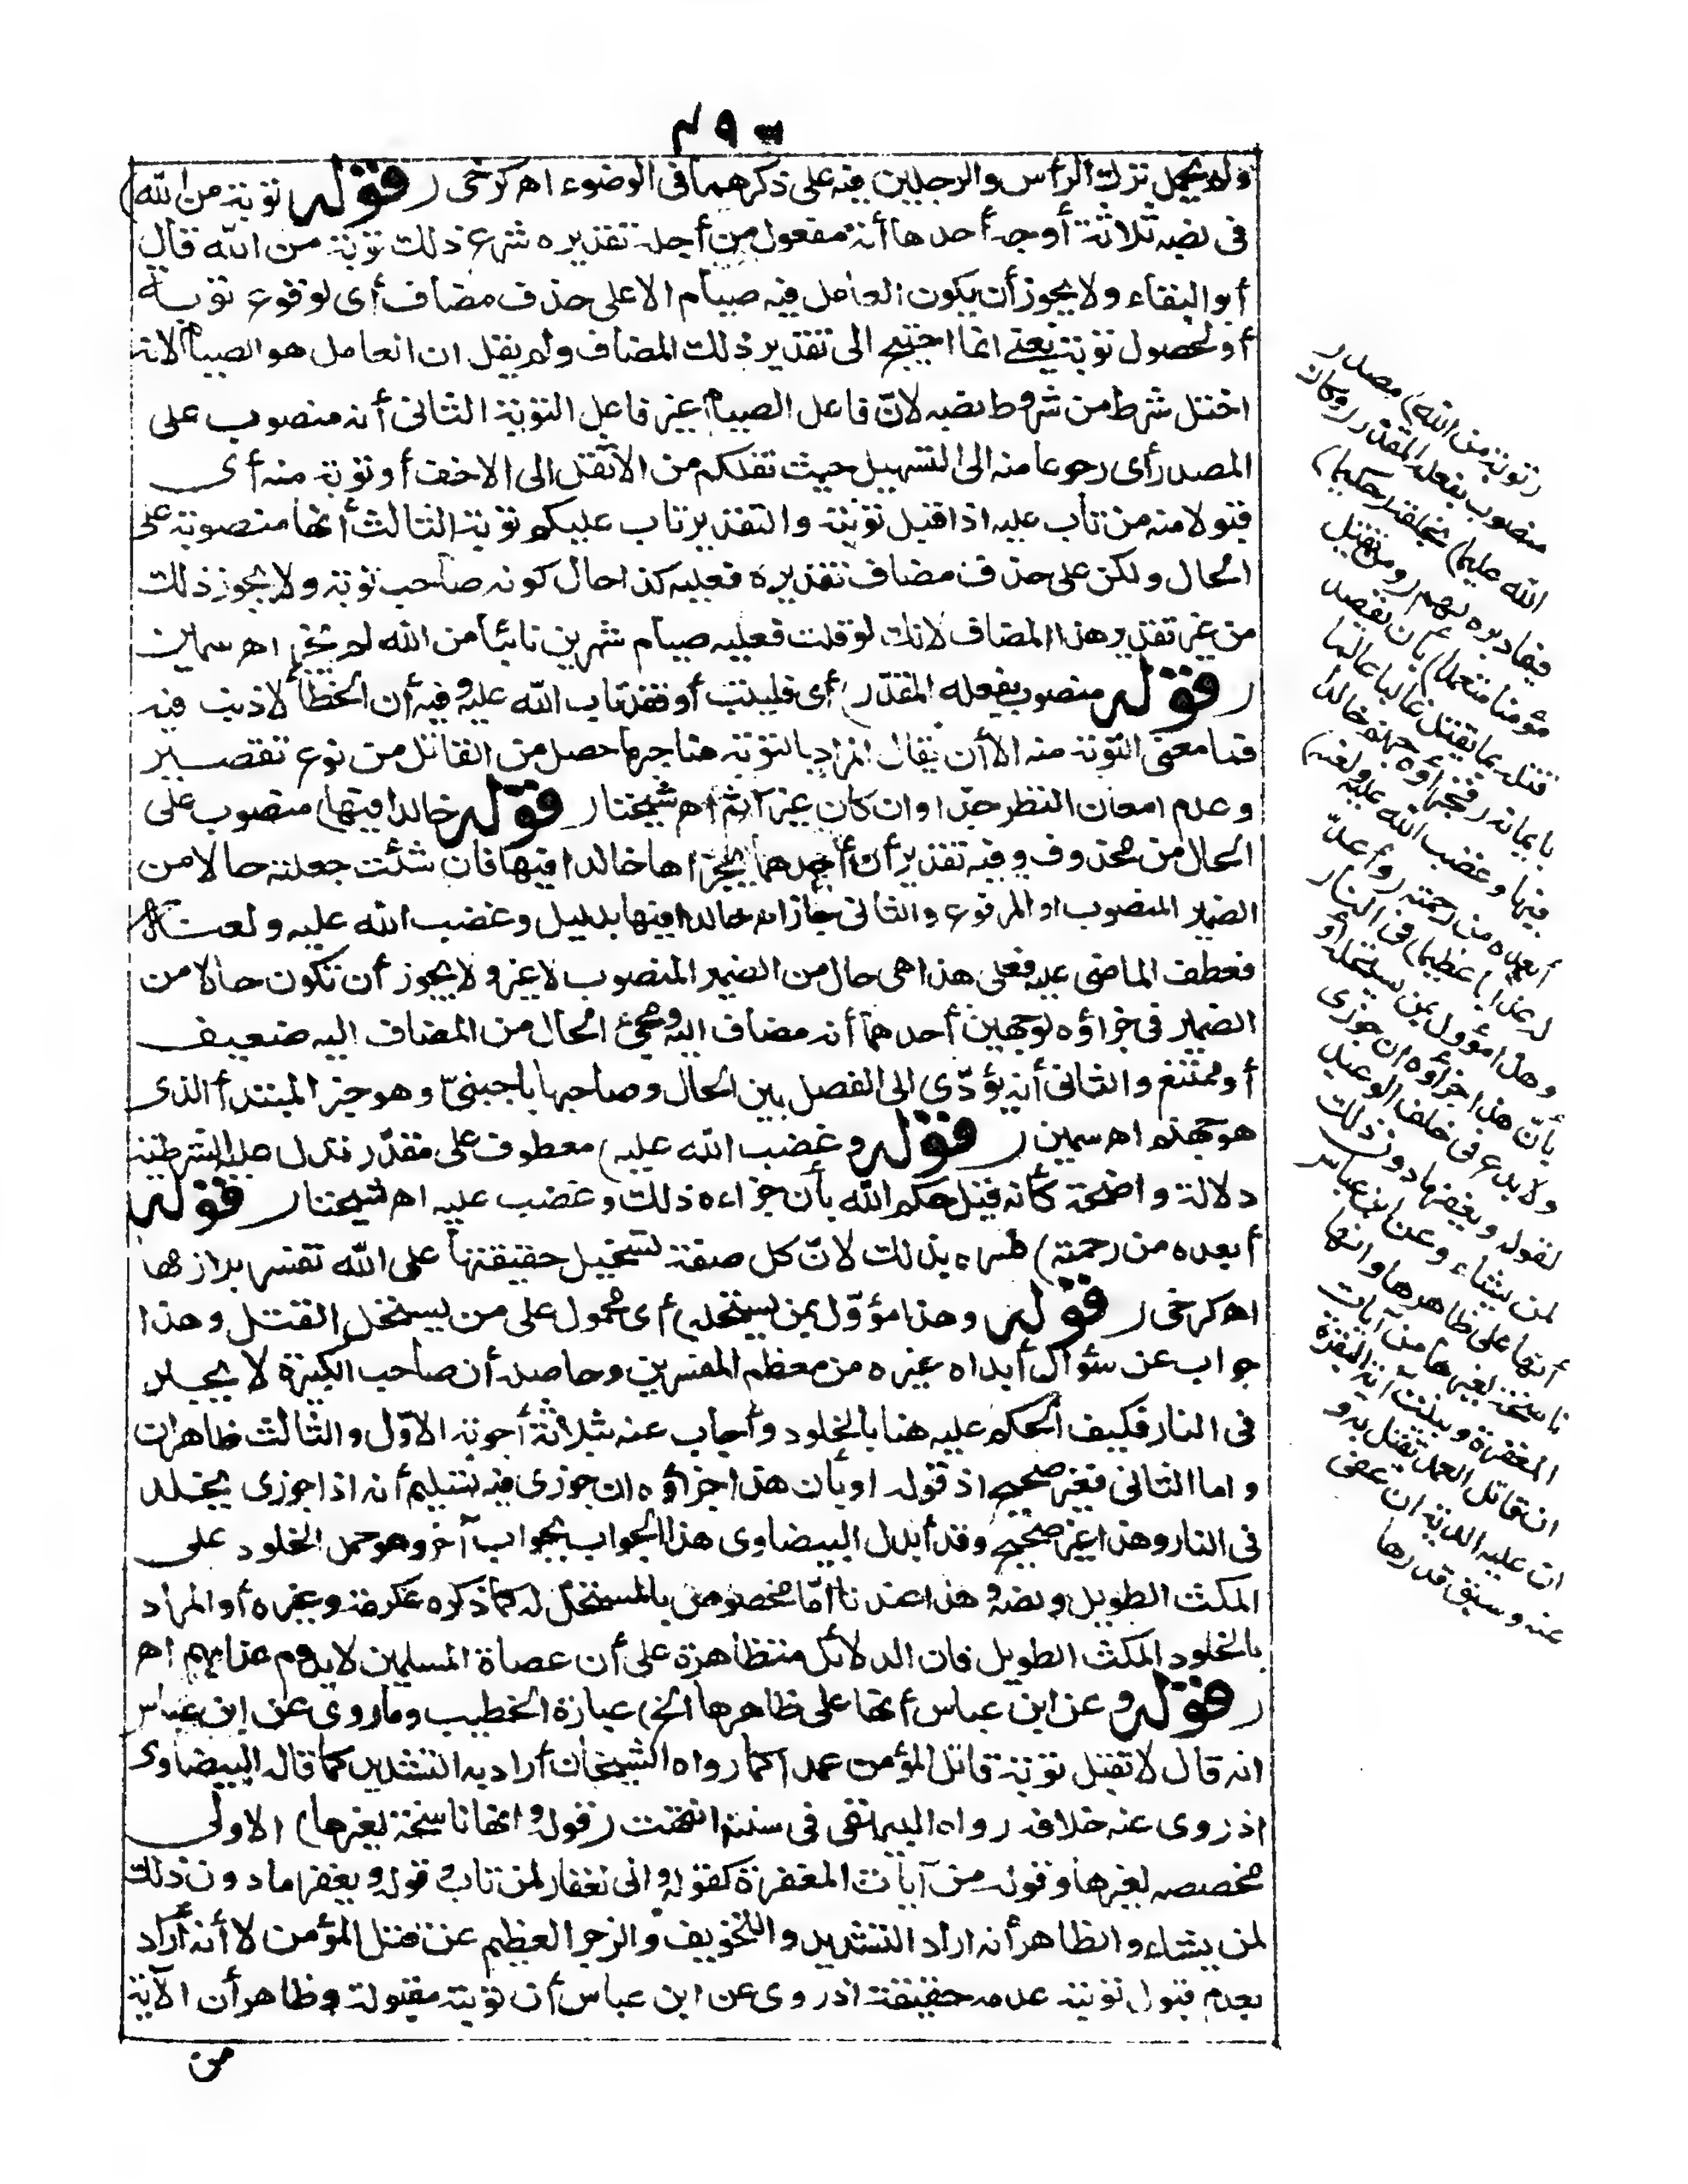 ٤٩٠
ولا يحمل ترك الرأس والرجلين فيه على ذكرهما في الوضوء اهـ كرخي (قوله توبة من الله)
في نصبه ثلاثة أوجه أحدها أنه مفعول من أجله تقديره شرع ذلك توبة من الله قال
أبو البقاء ولا يجوز أن يكون العامل فيه صيام الا على حذف مضاف أي لوقوع توبة
أو لحصول توبة يعني انما احتيج الى تقدير ذلك المضاف ولم يقل ان العامل هو الصيام لانه
اختل شرط من شروط نصبه لانّ فاعل الصيام غير فاعل التوبة الثاني أنه منصوب على
المصدر أي رجوعا منه الى التسهيل حيث نقلكم من الاثقل الى الاخف أو توبة منه أي
قبولا منه من تاب عليه اذا قبل توبته والتقدير تاب عليكم توبة الثالث أنها منصوبة على
الحال ولكن على حذف مضاف تقديره فعليه كذا حال كونه صاحب توبة ولا يجوز ذلك
من غير تقدير هذا المضاف لانك لو قلت فعليه صيام شهرين تائبا من الله لم يجز اهـ سمين
(قوله منصوب بفعله المقدّر) أي فليتب أو فقد تاب الله عليه وفيه أن الخطأ لا ذنب فيه
فما معنى التوبة منه الا أن يقال المراد بالتوبة هنا جبر ما حصل من القاتل من نوع تقصير
وعدم امعان النظر جدّا وان كان غير آثم اهـ شيخنا (قوله خالدا فيها) منصوب على
الحال من محذوف وفيه تقديران أحدهما يجزاها خالدا فيها فان شئت جعلته حالا من
الضمير المنصوب او المرفوع والثاني جازاه خالدا فيها بدليل وغضب الله عليه ولعنه
فعطف الماضي عليه فعلى هذا هي حال من الضمير المنصوب لا غير ولا يجوز أن تكون حالا من
الضمير في جزاؤه لوجهين أحدهما أنه مضاف اليه ومجيء الحال من المضاف اليه ضعيف
أو ممتنع والثاني أنه يؤدّي الى الفصل بين الحال وصاحبها باجنبيّ وهو خبر المبتدأ الذي
هو جهنم اهـ سمين (قوله وغضب الله عليه) معطوف على مقدّر تدل عليه الشرطية
دلالة واضحة كأنه قيل حكم الله بأن جزاءه ذلك وغضب عليه اهـ شيخنا (قوله
أبعده من رحمته) فسره بذلك لانّ كل صفة تستحيل حقيقتها على الله تفسر بلازمها
اهـ كرخي (قوله وهذا مؤوّل بمن يستحله) أي محمول على من يستحل القتل وهذا
جواب عن سؤال أبداه غيره من معظم المفسرين وحاصله أن صاحب الكبيرة لا يخلد
في النار فكيف الحكم عليه هنا بالخلود وأجاب عنه بثلاثة أجوبة الاوّل والثالث ظاهران
واما الثاني فغير صحيح اذ قوله او بأن هذا جزاؤه ان جوزي فيه تسليم أنه اذا جوزي يخلد
في النار وهذا غير صحيح وقد أبدل البيضاوي هذا الجواب بجواب آخر وهو حمل الخلود على
المكث الطويل ونصه وهذا عندنا امّا مخصوص بالمستحل له كما ذكره عكرمة وغيره أو المراد
بالخلود المكث الطويل فان الدلائل متظاهرة على أن عصاة المسلمين لا يدوم عذابهم اهـ
(قوله وعن ابن عباس أنها على ظاهرها الخ) عبارة الخطيب وما روي عن ابن عباس
انه قال لا تقبل توبة قاتل المؤمن عمدا كما رواه الشيخان أراد به التشديد كما قاله البيضاوي
اذ روي عنه خلافه رواه البيهقي في سننه انتهت (قوله وانها ناسخة لغيرها) الاولى
مخصصه لغيرها وقوله من آيات المغفرة كقوله واني لغفار لمن تاب وقوله ويغفر ما دون ذلك
لمن يشاء والظاهر أنه اراد التشديد والتخويف والزجر العظيم عن قتل المؤمن لا أنه أراد
بعدم قبول توبته عدمه حقيقة اذ روي عن ابن عباس أن توبته مقبولة وظاهر أن الآية
من
(توبة من الله) مصدر
منصوب بفعله المقدر (وكان
الله عليما) بخلقه (حكيما)
فيما دبره لهم (ومن يقتل
مؤمنا متعمدا) بأن يقصد
قتله بما يقتل غالبا عالما
بايمانه (فجزاؤه جهنم خالدا
فيها وغضب الله عليه ولعنه)
أبعده من رحمته (وأعدّ
له عذابا عظيما) في النار
وهذا مؤول بمن يستحله أو
بأنّ هذا جزاؤه ان جوزي
ولا بدع في خلف الوعيد
لقوله ويغفر ما دون ذلك
لمن يشاء وعن ابن عباس
أنها على ظاهرها وانها
ناسخة لغيرها من آيات
المغفرة وبينت آية البقرة
ان قاتل العمد يقتل به و
ان عليه الدية ان عفي
عنه وسبق قدرها